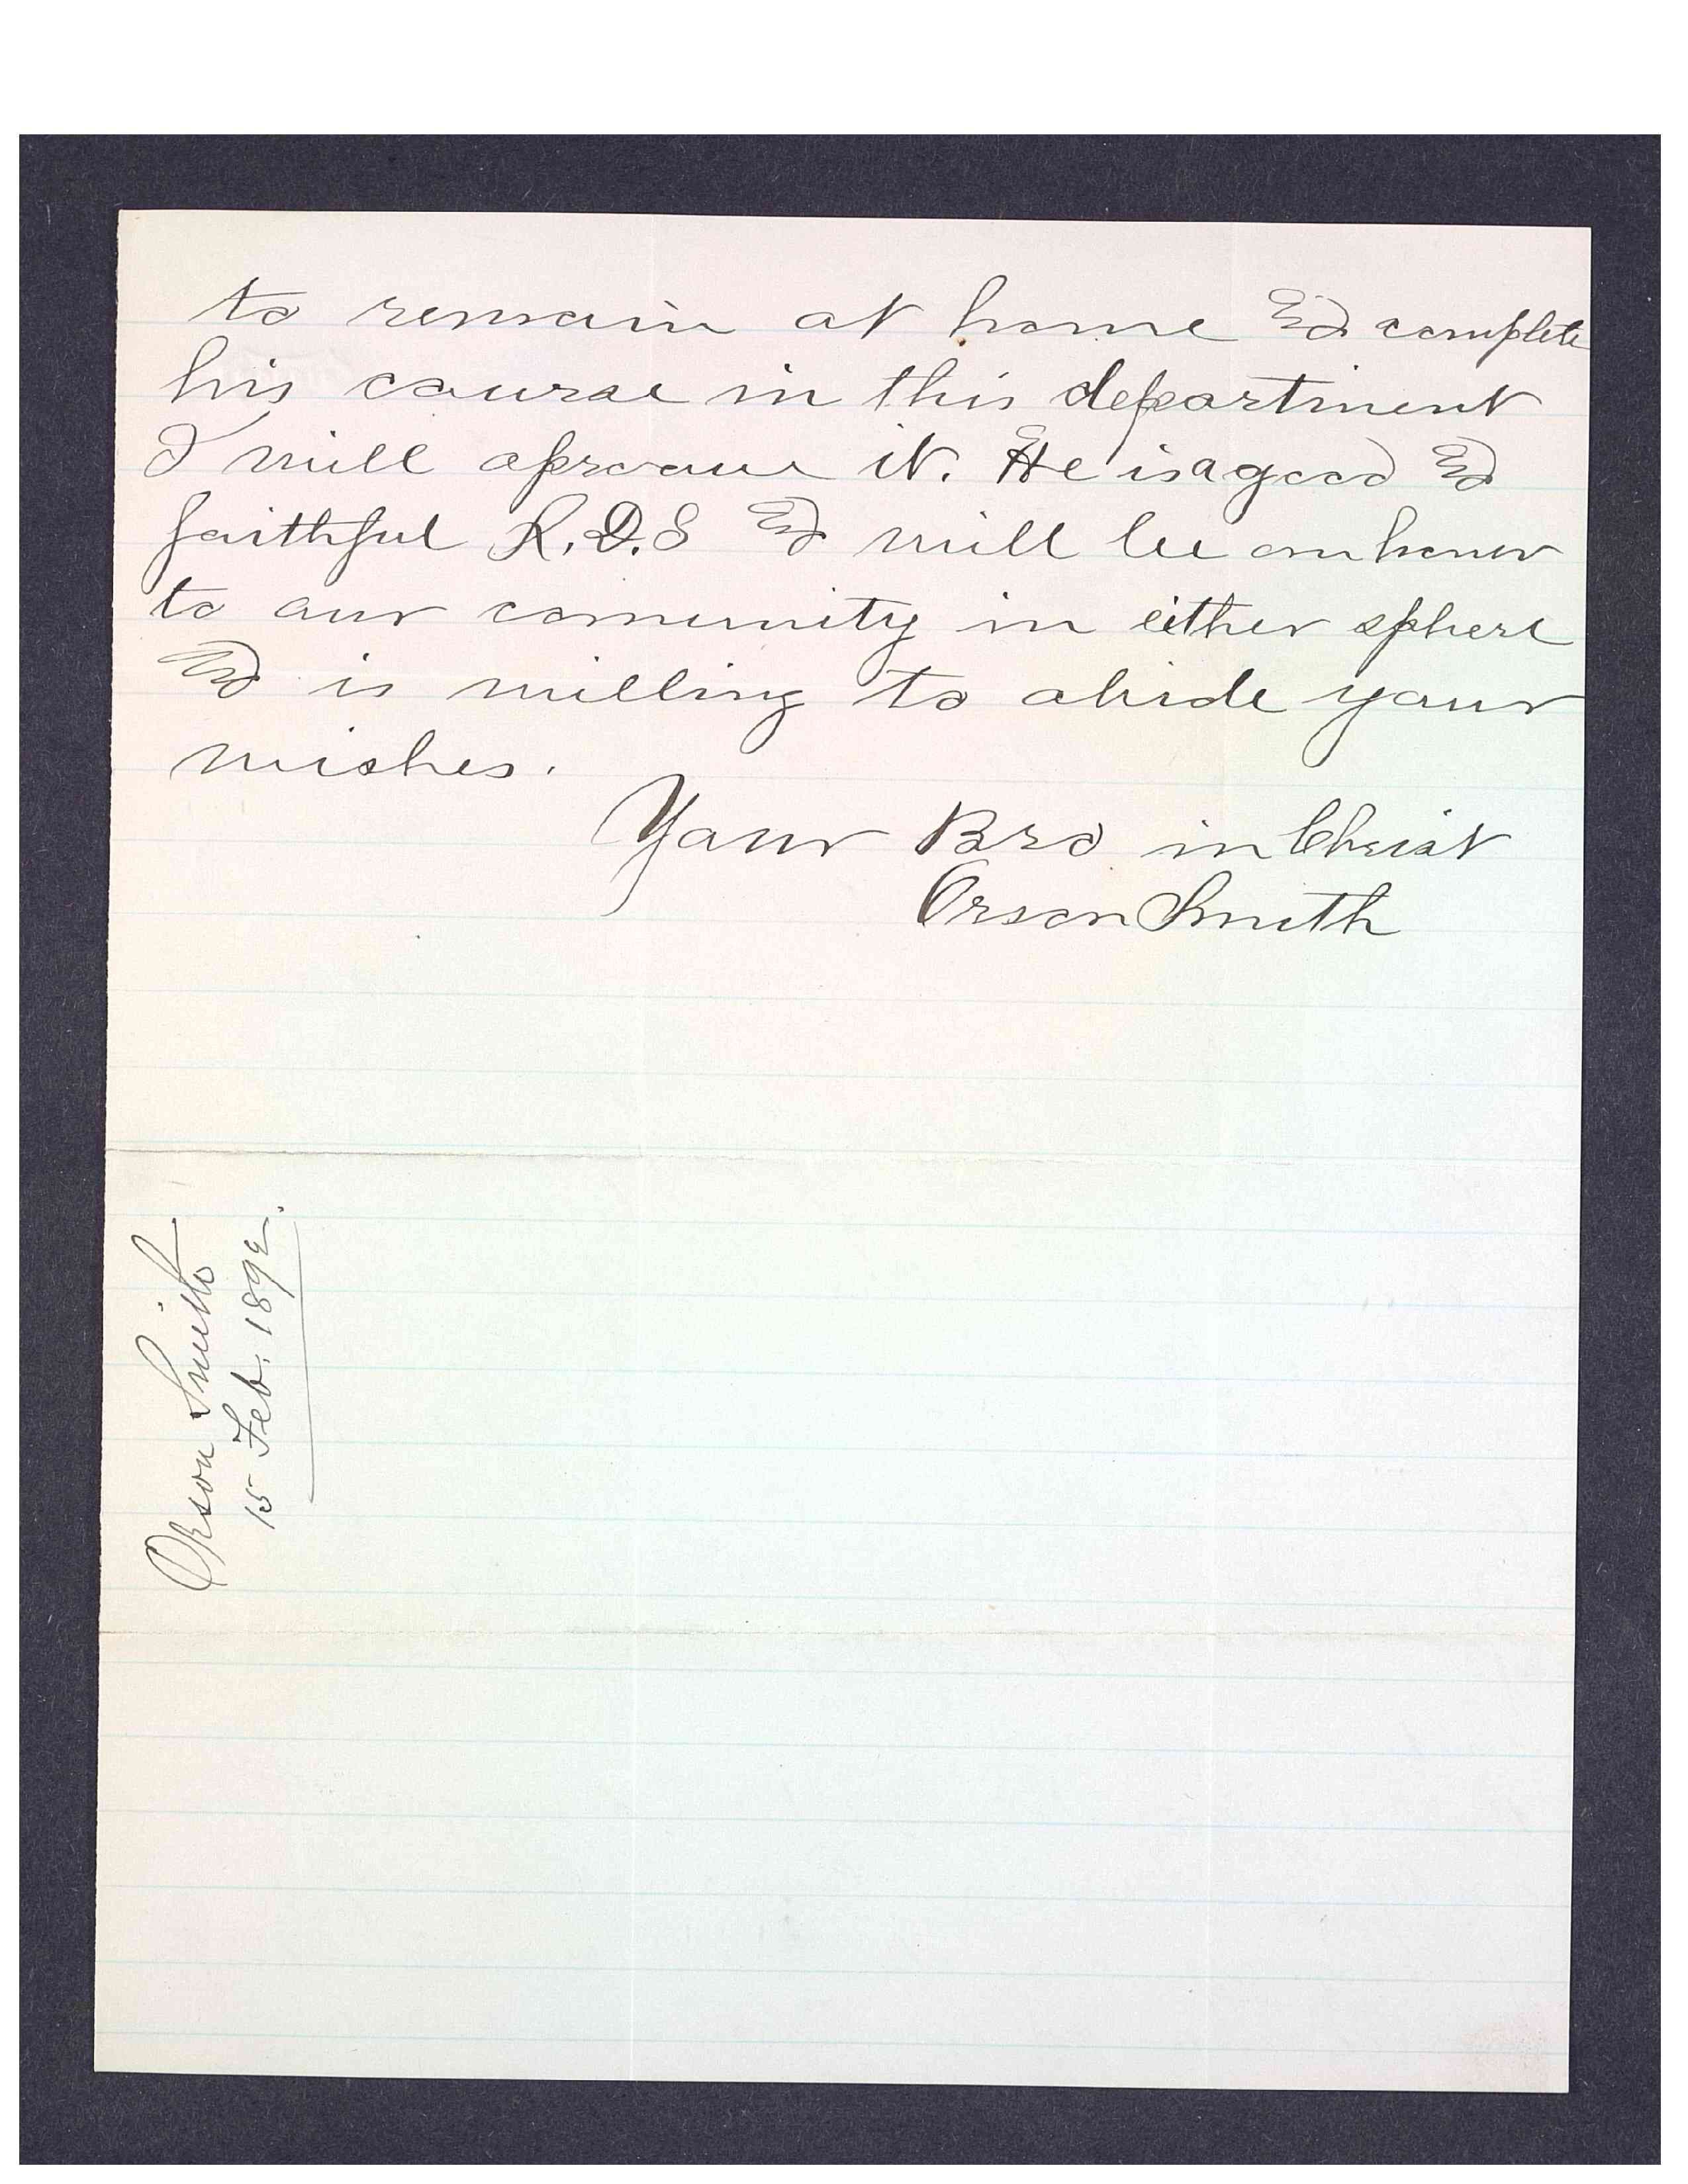 to remain at home & complete
his course in this department
I will aproove it. He is a good &
faithful L.D.S & will be an honor
to our comunity in either sphere
& is willing to abide your
wishes.
Your Bro in Christ
Orson Smith
Orson Smith
15 Feb. 1892.